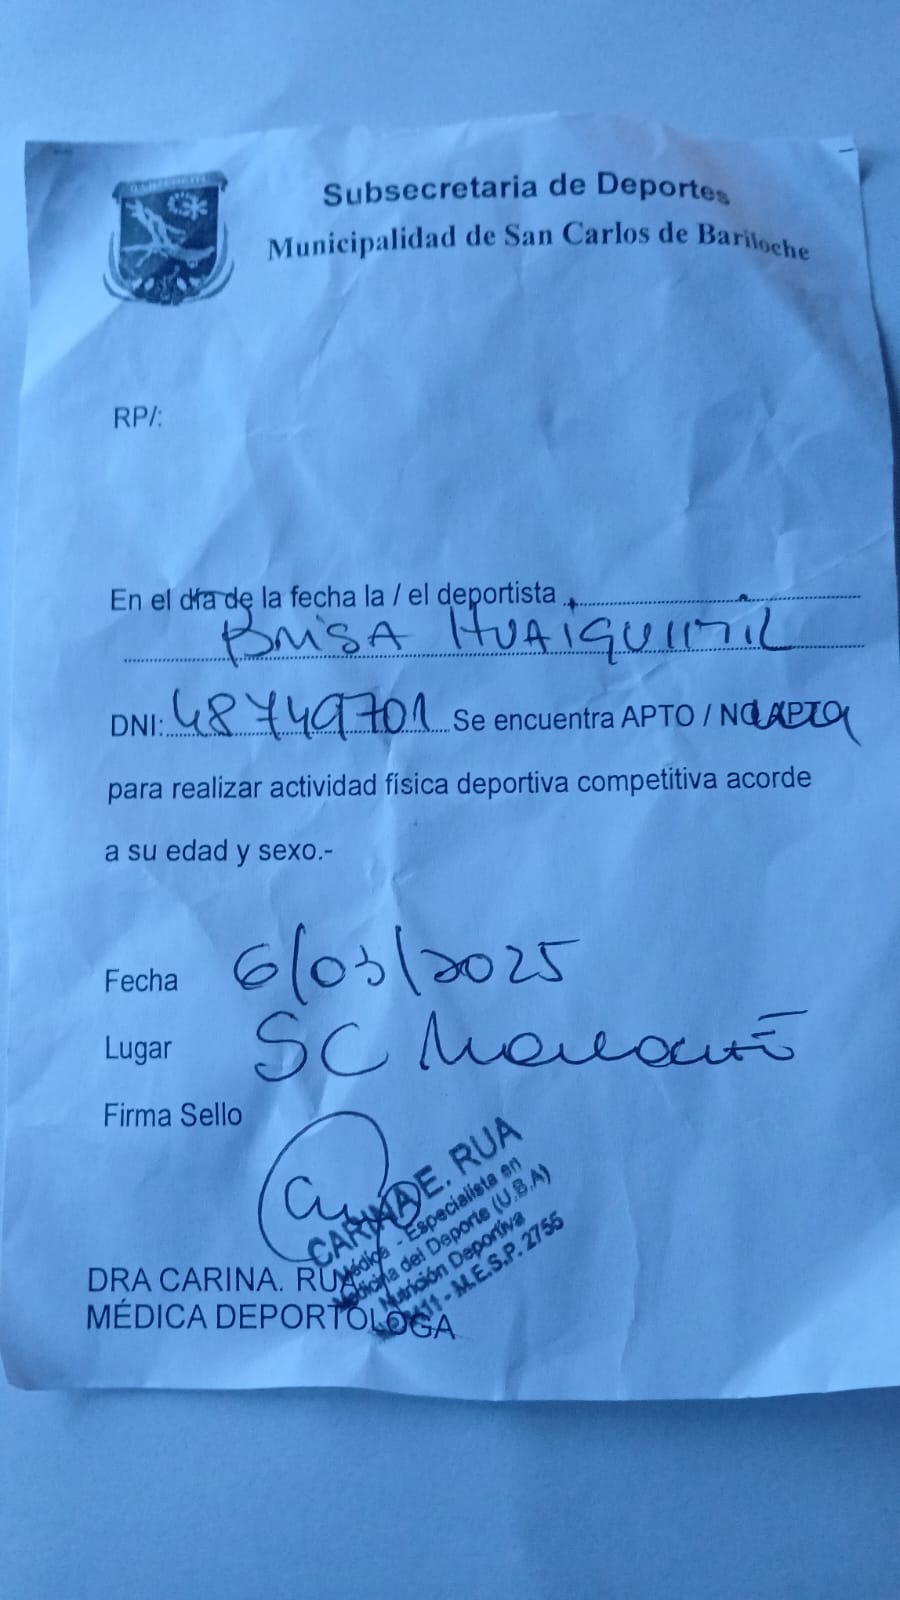 Subsecretaria de Deportes
Municipalidad de San Carlos de Bariloche
RP/:
En el día de la fecha la / el deportista
BRISA HUAIQUIMIL
DNI: 48749701 Se encuentra APTO / NO APTO
para realizar actividad física deportiva competitiva acorde
a su edad y sexo.-
Fecha 6/03/2025
Lugar SC
Firma Sello
CARINA E. RUA
Médica - Especialista en
Medicina del Deporte (U.B.A)
Nutrición Deportiva
11 - M.E.S.P. 2755
DRA CARINA. RUA
MÉDICA DEPORTÓLOGA